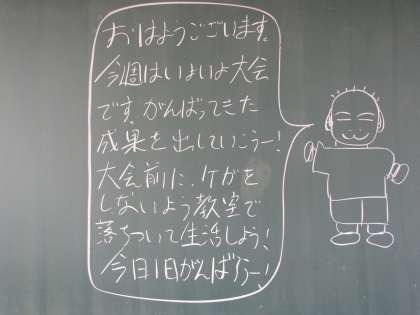 おはようございます。
今週はいよいよ大会
です。がんばってきた
成果を出していこうー!
大会前に、ケガを
しないよう教室で
落ちついて生活しよう!
今日1日がんばろうー!